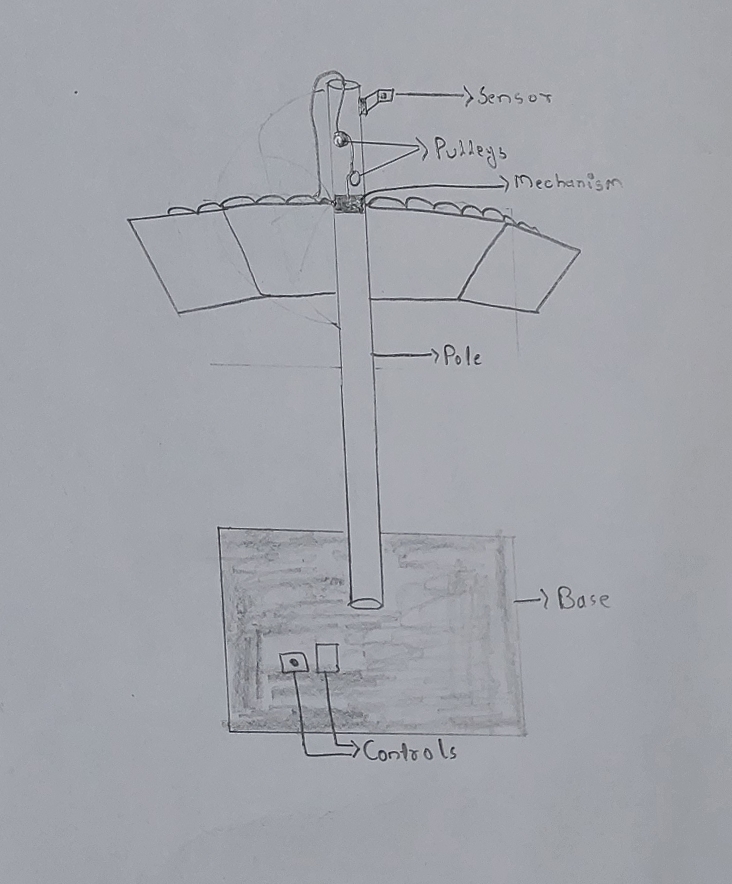 Sensor
Pulleys
Mechanism
Pole
Base
Controls